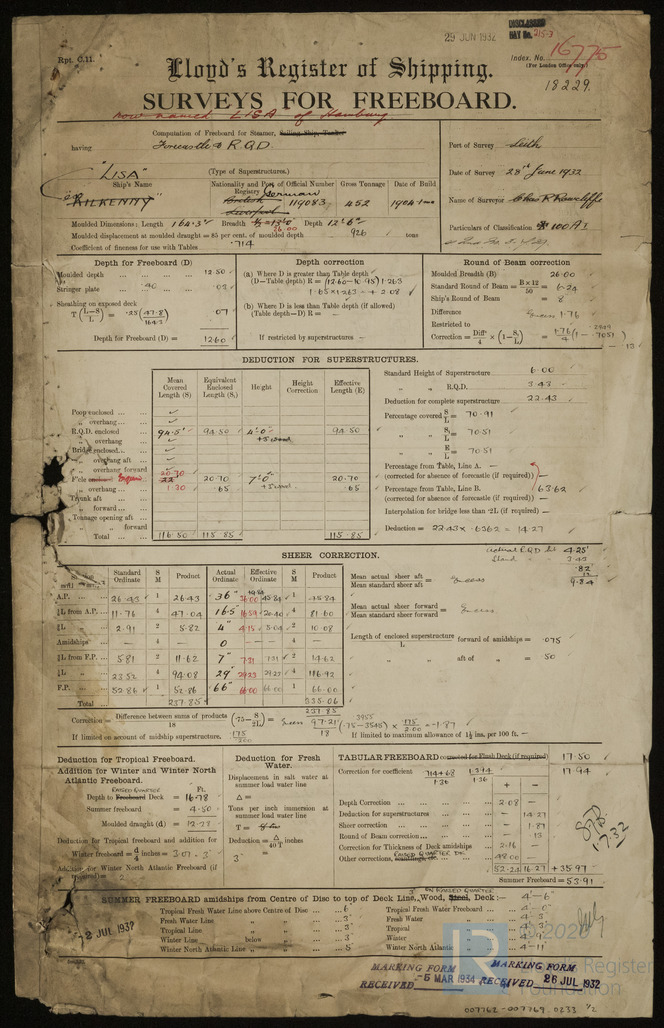 29 JUN 1932
UNCLASSED
Rpt. C.11.
Index. No. 16775
(For London Office only.)
18229.
Lloyd's Register of Shipping.
SURVEYS FOR FREEBOARD.
now named LISA of Hamburg
Computation of Freeboard for Steamer, Sailing Ship, Tanker
having Forecastle & R.Q.D.
Port of Survey Leith
(Type of Superstructures.)
Date of Survey 28th June 1932
"LISA"
Ship's Name
Nationality and Port of Registry
Official Number
Gross Tonnage
Date of Build
Name of Surveyor
"KILKENNY"
German
British
Liverpool
119083
452
1904
Particulars of Classification 100 A1
Moulded Dimensions: Length 164.3 Breadth 26.00 Depth 12'6"
Moulded displacement at moulded draught = 85 per cent. of moulded depth 926 tons
Coefficient of fineness for use with Tables .714
Depth for Freeboard (D)
Moulded depth 12.50
Stringer plate .40 .03
Sheathing on exposed deck
T (L-S/L) = .07
Depth for Freeboard (D) = 12.60
Depth correction
(a) Where D is greater than Table depth
(D—Table depth) R = (12.60-10.95) 1.263
1.65 x 1.263 = + 2.08
(b) Where D is less than Table depth (if allowed)
(Table depth—D) R =
If restricted by superstructures
Round of Beam correction
Moulded Breadth (B) 26.00
Standard Round of Beam = B×12/50 = 6.24
Ship's Round of Beam = 8
Difference Excess 1.76
Restricted to
Correction = Diff/4 × (1-S/L) = +.76/4 (1-.7051) = -.13
DEDUCTION FOR SUPERSTRUCTURES.
Mean Covered Length (S)
Equivalent Enclosed Length (S1)
Height
Height Correction
Effective Length (E)
Poop enclosed
„ overhang
R.Q.D. enclosed 94.5' 94.50 4'.0" 94.50
„ overhang
Bridge enclosed
„ overhang aft
„ overhang forward
F'cle enclosed 20.70 20.70 7'.0" 20.70
„ overhang 1.30 .65 .65
Trunk aft
„ forward
Tonnage opening aft
„ „ forward
Total 116.50 115.85 115.85
Standard Height of Superstructure 6.00
„ „ R.Q.D. 3.43
Deduction for complete superstructure 22.43
Percentage covered S/L = 70.91
„ „ S1/L = 70.51
„ „ E/L = 70.51
Percentage from Table, Line A.
(corrected for absence of forecastle (if required))
Percentage from Table, Line B. 63.62
(corrected for absence of forecastle (if required))
Interpolation for bridge less than .2L (if required)
Deduction = 22.43 x .6362 = 14.27
SHEER CORRECTION.
Actual R.Q.D. ht 4.25'
Stand „ 3.43
.82
9.84
Standard Ordinate
S M
Product
Actual Ordinate
Effective Ordinate
S M
Product
A.P. 26.43 1 26.43 36" 36.00 45.84 1 45.84
L from A.P. 11.76 4 47.04 16.5 20.40 4 81.60
L „ 2.91 2 5.82 4" 5.04 2 10.08
Amidships 4 0 4
L from F.P. 5.81 2 11.62 7" 7.31 2 14.62
L „ 23.52 4 94.08 29" 29.23 4 116.92
F.P. 52.86 1 52.86 66" 66.00 66.00 1 66.00
Total 237.85 335.06
237.85
97.21
Mean actual sheer aft
Mean standard sheer aft = Excess
Mean actual sheer forward
Mean standard sheer forward = Excess
Length of enclosed superstructure forward of amidships = .075
L
„ „ aft of „ = .50
Correction = Difference between sums of products/18 (.75-S/2L) = Excess 97.21/18 (.75-.3545) × 175/200 = -1.87
If limited on account of midship superstructure. 175/200
If limited to maximum allowance of 1½ ins. per 100 ft.
Deduction for Tropical Freeboard.
Addition for Winter and Winter North Atlantic Freeboard.
RAISED QUARTER
Ft.
Depth to Freeboard Deck = 16.78
Summer freeboard = 4.50
Moulded draught (d) = 12.28
Deduction for Tropical freeboard and addition for
Winter freeboard = d/4 inches = 3.07 - 3"
Addition for Winter North Atlantic Freeboard (if required) = 2
Deduction for Fresh Water.
Displacement in salt water at summer load water line
Δ =
Tons per inch immersion at summer load water line
T =
Deduction = Δ/40T inches
= 3"
TABULAR FREEBOARD corrected for Flush Deck (if required) 17.50
Correction for coefficient .714+.68/1.36 17.94
+ -
Depth Correction 2.08
Deduction for superstructures 14.27
Sheer correction 1.87
Round of Beam correction .13
Correction for Thickness of Deck amidships 2.16
Other corrections, RAISED QUARTER DK 48.00
52.24 16.27 + 35.97
Summer Freeboard = 53.91
1.7.32
SUMMER FREEBOARD amidships from Centre of Disc to top of Deck Line, Wood, Steel, Deck:- 4'-6"
ON RAISED QUARTER
Tropical Fresh Water Line above Centre of Disc 6"
Fresh Water Line „ „ 3"
Tropical Line „ „ 3"
Winter Line below „ 3"
Winter North Atlantic Line „ „ 5"
Tropical Fresh Water Freeboard 4'-0"
Fresh Water „ 4'-3"
Tropical „ 4'-3"
Winter „ 4'-9"
Winter North Atlantic „ 4'-11"
2 JUL 1932
MARKING FORM
RECEIVED -5 MAR 1934
MARKING FORM
RECEIVED 26 JUL 1932
© 2020
Lloyd's Register
Foundation
007762-007769-0233 ½